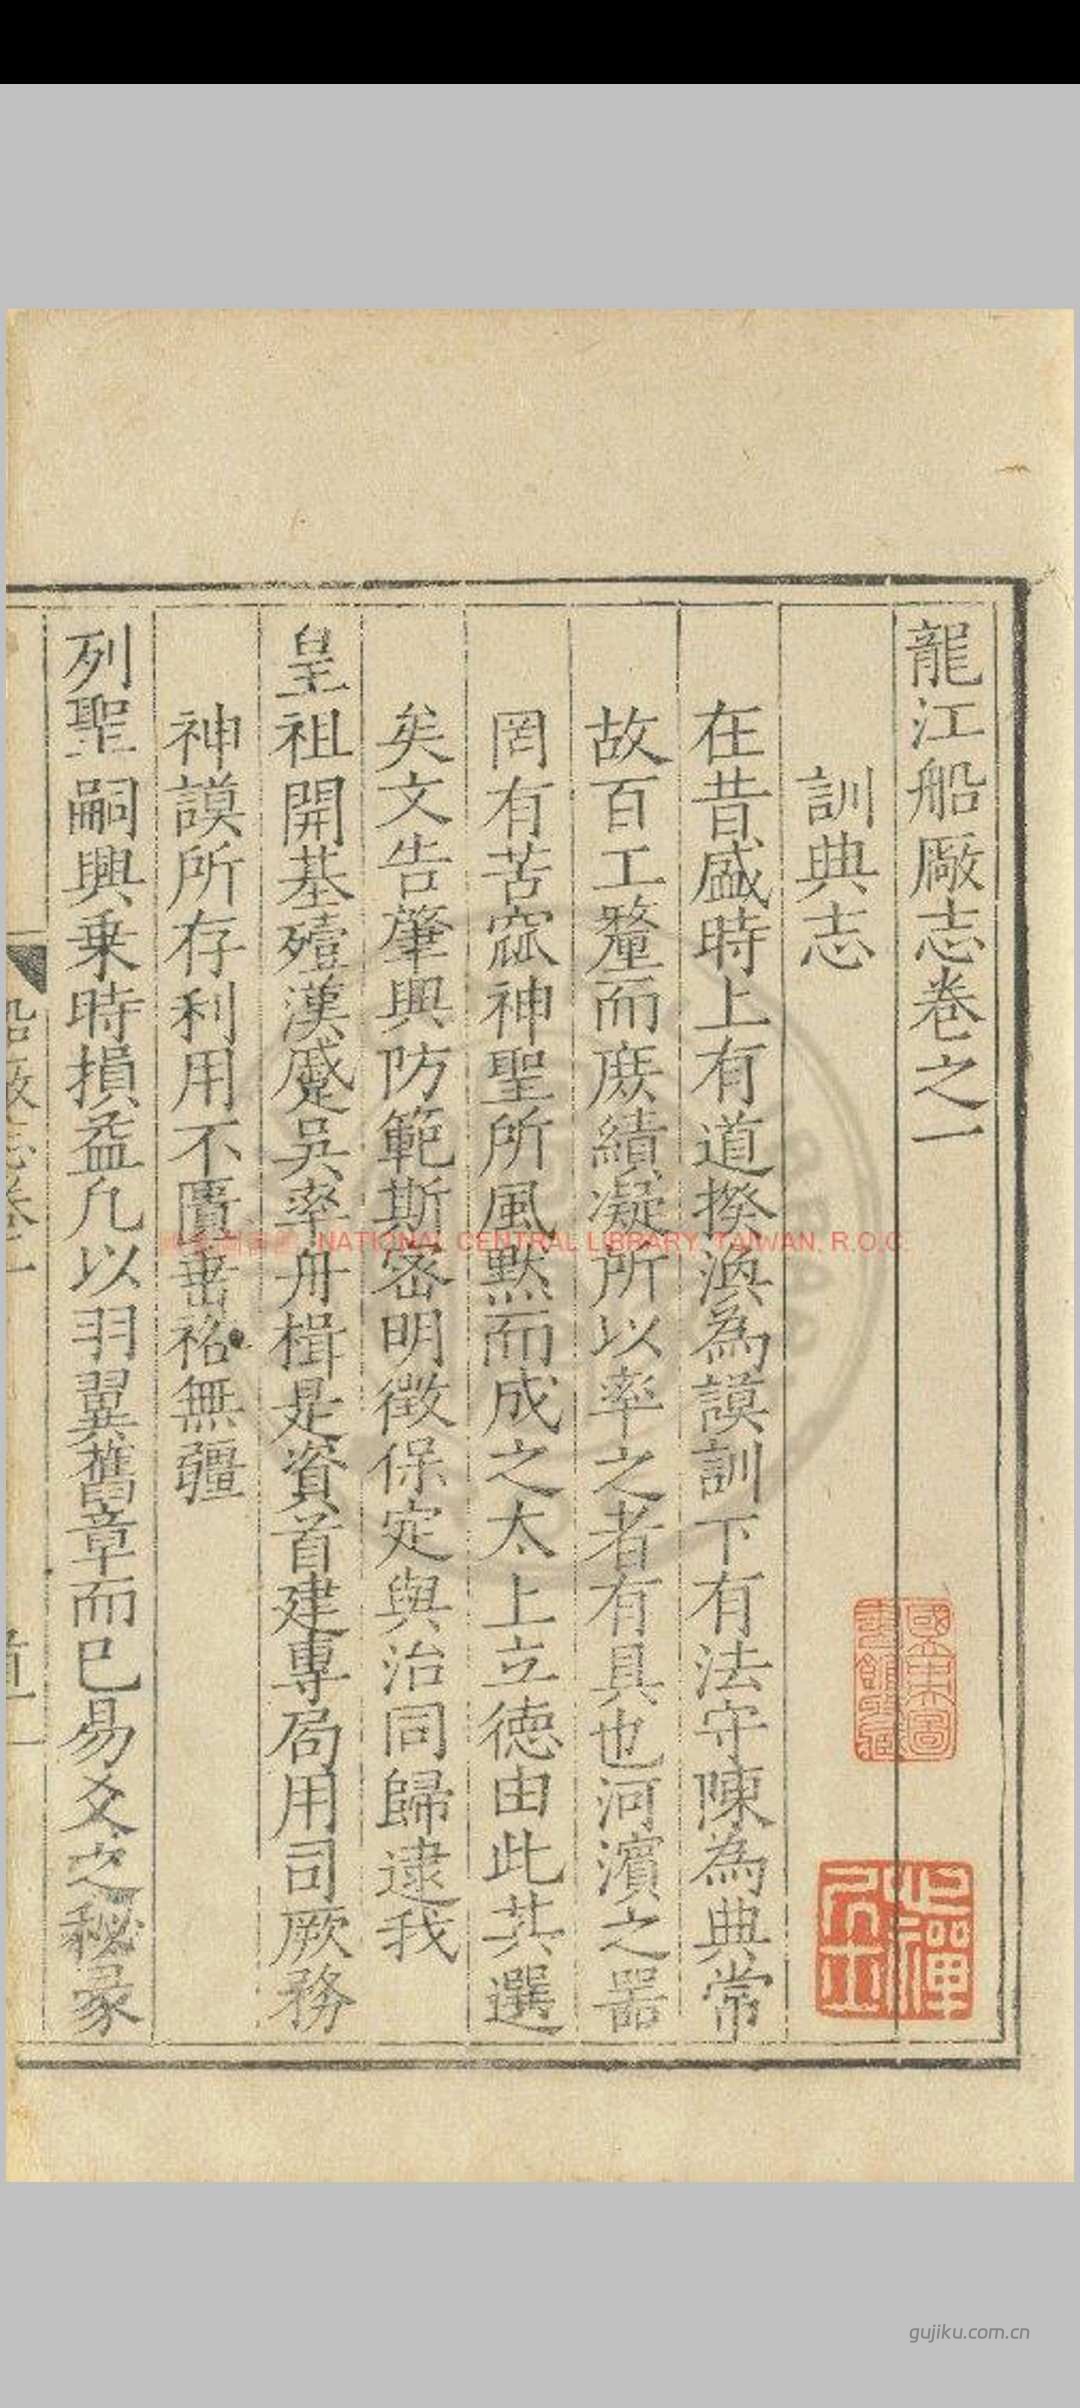 龍江船厰志卷之一
訓典志
在昔盛時上有道揆渙為謨訓下有法守陳為典常
故百工釐而庶績凝所以率之者有具也河濱之噐
罔有苦窳神聖所風黙而成之太上立德由此其選
矣文告肇興防範斯宻明徴保定與治同歸逮我
皇祖開基殪漢蹙吳率舟楫是資首建專局用司厥務
神謨所存利用不匱垂裕無疆
列聖嗣興乗時損益凢以羽翼舊章而已易爻之秘彖
船厰志卷之一
國立中央圖書館收藏
NATIONAL CENTRAL LIBRARY, TAIWAN, R.O.C
gujiku.com.cn